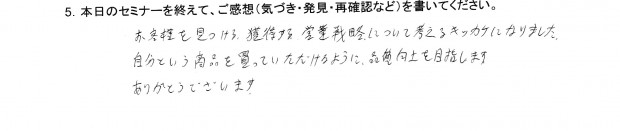 5. 本日のセミナーを終えて、ご感想（気づき・発見・再確認など）を書いてください。
お客様を見つける、獲得する 営業戦略について考えるキッカケになりました。
自分という商品を買っていただけるように、品質向上を目指します
ありがとうございます